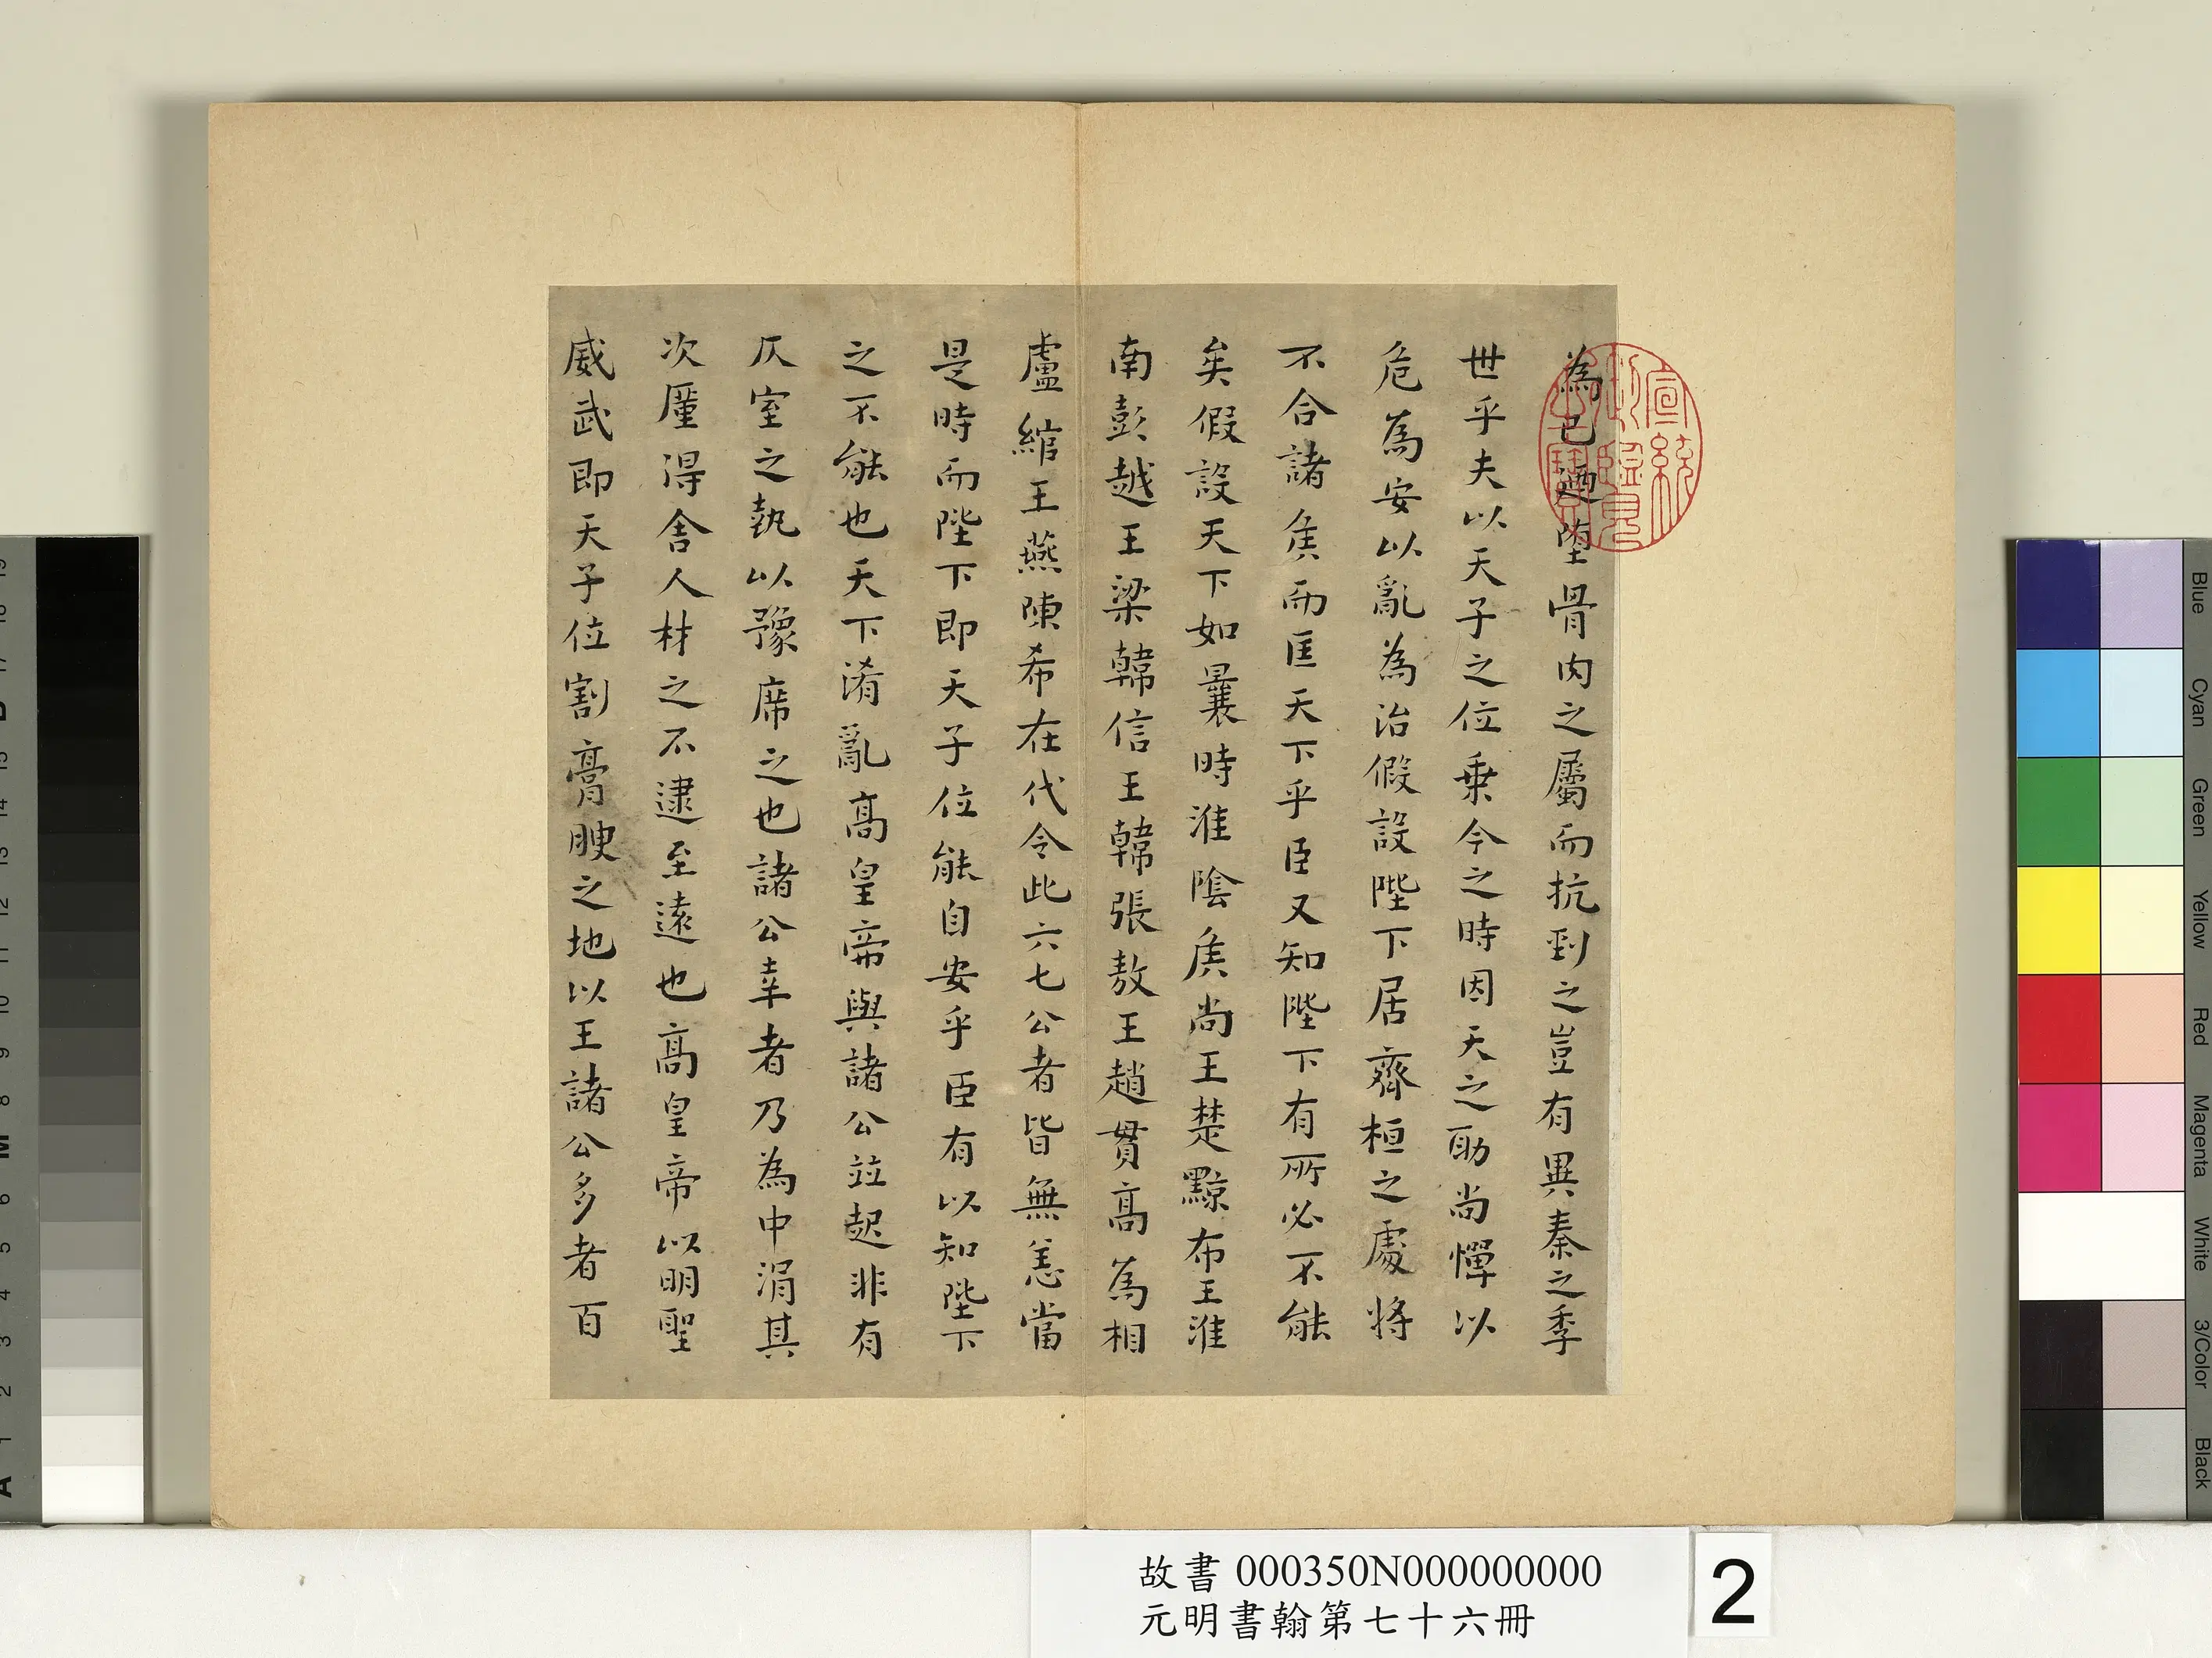 為已廼墮骨肉之屬而抗剄之豈有異秦之季
世乎夫以天子之位乗今之時因天之助尚憚以
危為安以亂為治假設陛下居齊桓之處將
不合諸侯而匡天下乎臣又知陛下有所必不能
矣假設天下如曩時淮陰侯尚王楚黥布王淮
南彭越王梁韓信王韓張敖王趙貫高為相
盧綰王燕陳希在代令此六七公者皆無恙當
是時而陛下即天子位能自安乎臣有以知陛下
之不能也天下淆亂高皇帝與諸公竝起非有
仄室之埶以豫席之也諸公幸者乃為中涓其
次厪得舍人材之不逮至遠也高皇帝以明聖
威武即天子位割膏腴之地以王諸公多者百
宣統御覽之寶
故書 000350N000000000
元明書翰第七十六冊
2
Blue
Cyan
Green
Yellow
Red
Magenta
White
3/Color
Black
A 1 2 3 4 5 6 M 8 9 10 11 12 13 14 15 B 17 18 19